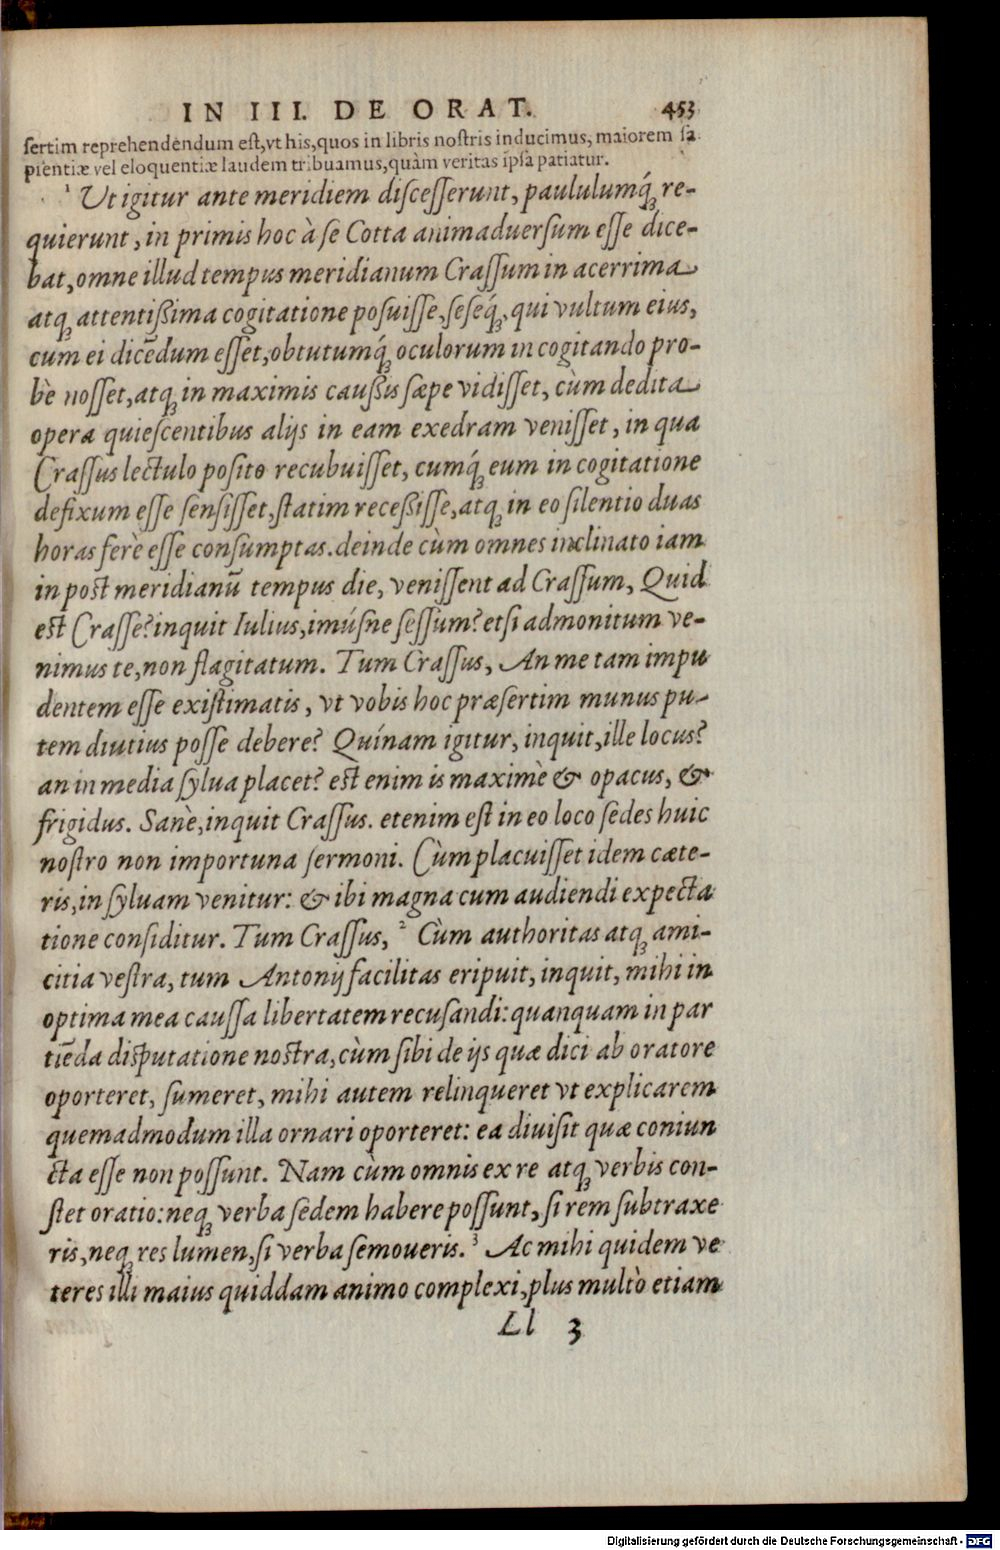 IN III. DE ORAT. 453
ſertim reprehendendum eſt,vt his,quos in libris noſtris inducimus, maiorem ſa
pientiæ vel eloquentiæ laudem tribuamus,quàm veritas ipſa patiatur.
¹ Vt igitur ante meridiem diſceſſerunt, paululumq́ꝫ re-
quierunt, in primis hoc à ſe Cotta animaduerſum eſſe dice-
bat, omne illud tempus meridianum Craſſum in acerrima
atqꝫ attentißima cogitatione poſuiſſe, ſeſeq́ꝫ, qui vultum eius,
cum ei dicẽdum eſſet, obtutumq́ꝫ oculorum in cogitando pro-
bè noſſet, atqꝫ in maximis caußis ſæpe vidiſſet, cùm dedita
opera quieſcentibus alijs in eam exedram veniſſet, in qua
Craſſus lectulo poſito recubuiſſet, cumq́ꝫ eum in cogitatione
defixum eſſe ſenſiſſet, ſtatim receßiſſe, atqꝫ in eo ſilentio duas
horas ferè eſſe conſumptas. deinde cùm omnes inclinato iam
in poſt meridianũ tempus die, veniſſent ad Craſſum, Quid
eſt Craſſe? inquit Iulius, imúſne ſeſſum? etſi admonitum ve-
nimus te, non flagitatum. Tum Craſſus, An me tam impu
dentem eſſe exiſtimatis, vt vobis hoc præſertim munus pu-
tem diutius poſſe debere? Quínam igitur, inquit, ille locus?
an in media ſylua placet? eſt enim is maximè & opacus, &
frigidus. Sanè, inquit Craſſus. etenim eſt in eo loco ſedes huic
noſtro non importuna ſermoni. Cùm placuiſſet idem cæte-
ris, in ſyluam venitur: & ibi magna cum audiendi expecta
tione conſiditur. Tum Craſſus, ² Cùm authoritas atqꝫ ami-
citia veſtra, tum Antonij facilitas eripuit, inquit, mihi in
optima mea cauſſa libertatem recuſandi: quanquam in par
tiẽda diſputatione noſtra, cùm ſibi de ijs quæ dici ab oratore
oporteret, ſumeret, mihi autem relinqueret vt explicarem
quemadmodum illa ornari oporteret: ea diuiſit quæ coniun
cta eſſe non poſſunt. Nam cùm omnis ex re atqꝫ verbis con-
ſtet oratio: neqꝫ verba ſedem habere poſſunt, ſi rem ſubtraxe
ris, neqꝫ res lumen, ſi verba ſemoueris. ³ Ac mihi quidem ve
teres illi maius quiddam animo complexi, plus multò etiam
Ll 3
Digitalisierung gefördert durch die Deutsche Forschungsgemeinschaft - DFG